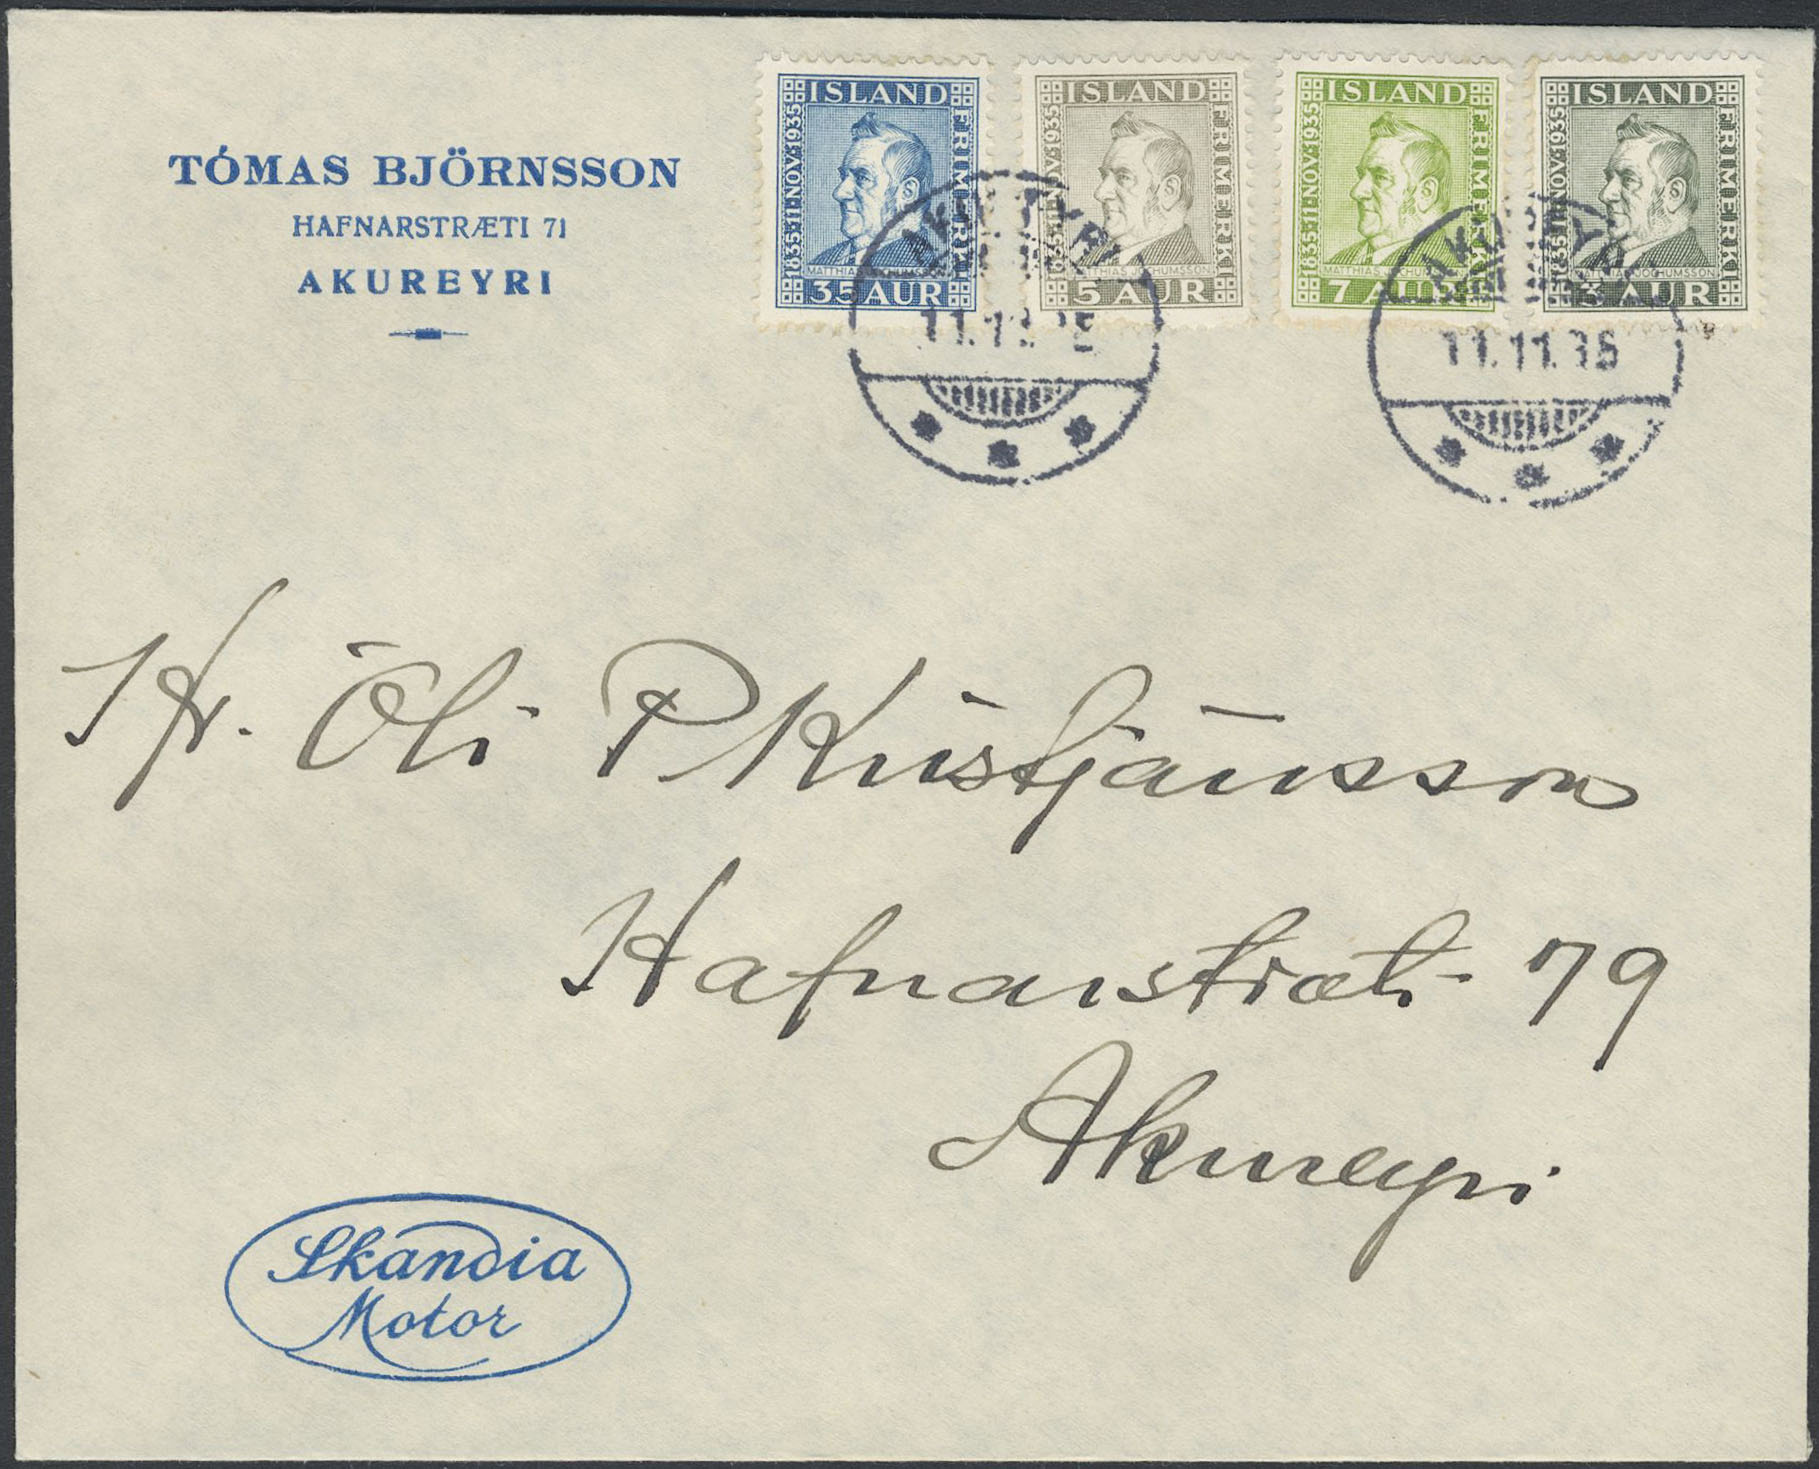 TÓMAS BJÖRNSSON
HAFNARSTRÆTI 71
AKUREYRI
ISLAND
1835·11·NOV·1935
FRIMERKI
MATTHIAS JOCHUMSSON
35 AUR
ISLAND
1835·11·NOV·1935
FRIMERKI
MATTHIAS JOCHUMSSON
5 AUR
ISLAND
1835·11·NOV·1935
FRIMERKI
MATTHIAS JOCHUMSSON
7 AUR
ISLAND
1835·11·NOV·1935
FRIMERKI
MATTHIAS JOCHUMSSON
3 AUR
AKUREYRI
11.11.35
AKUREYRI
11.11.35
Hr. Óli P Kristjánsson
Hafnarstræti 79
Akureyri
Skandia
Motor